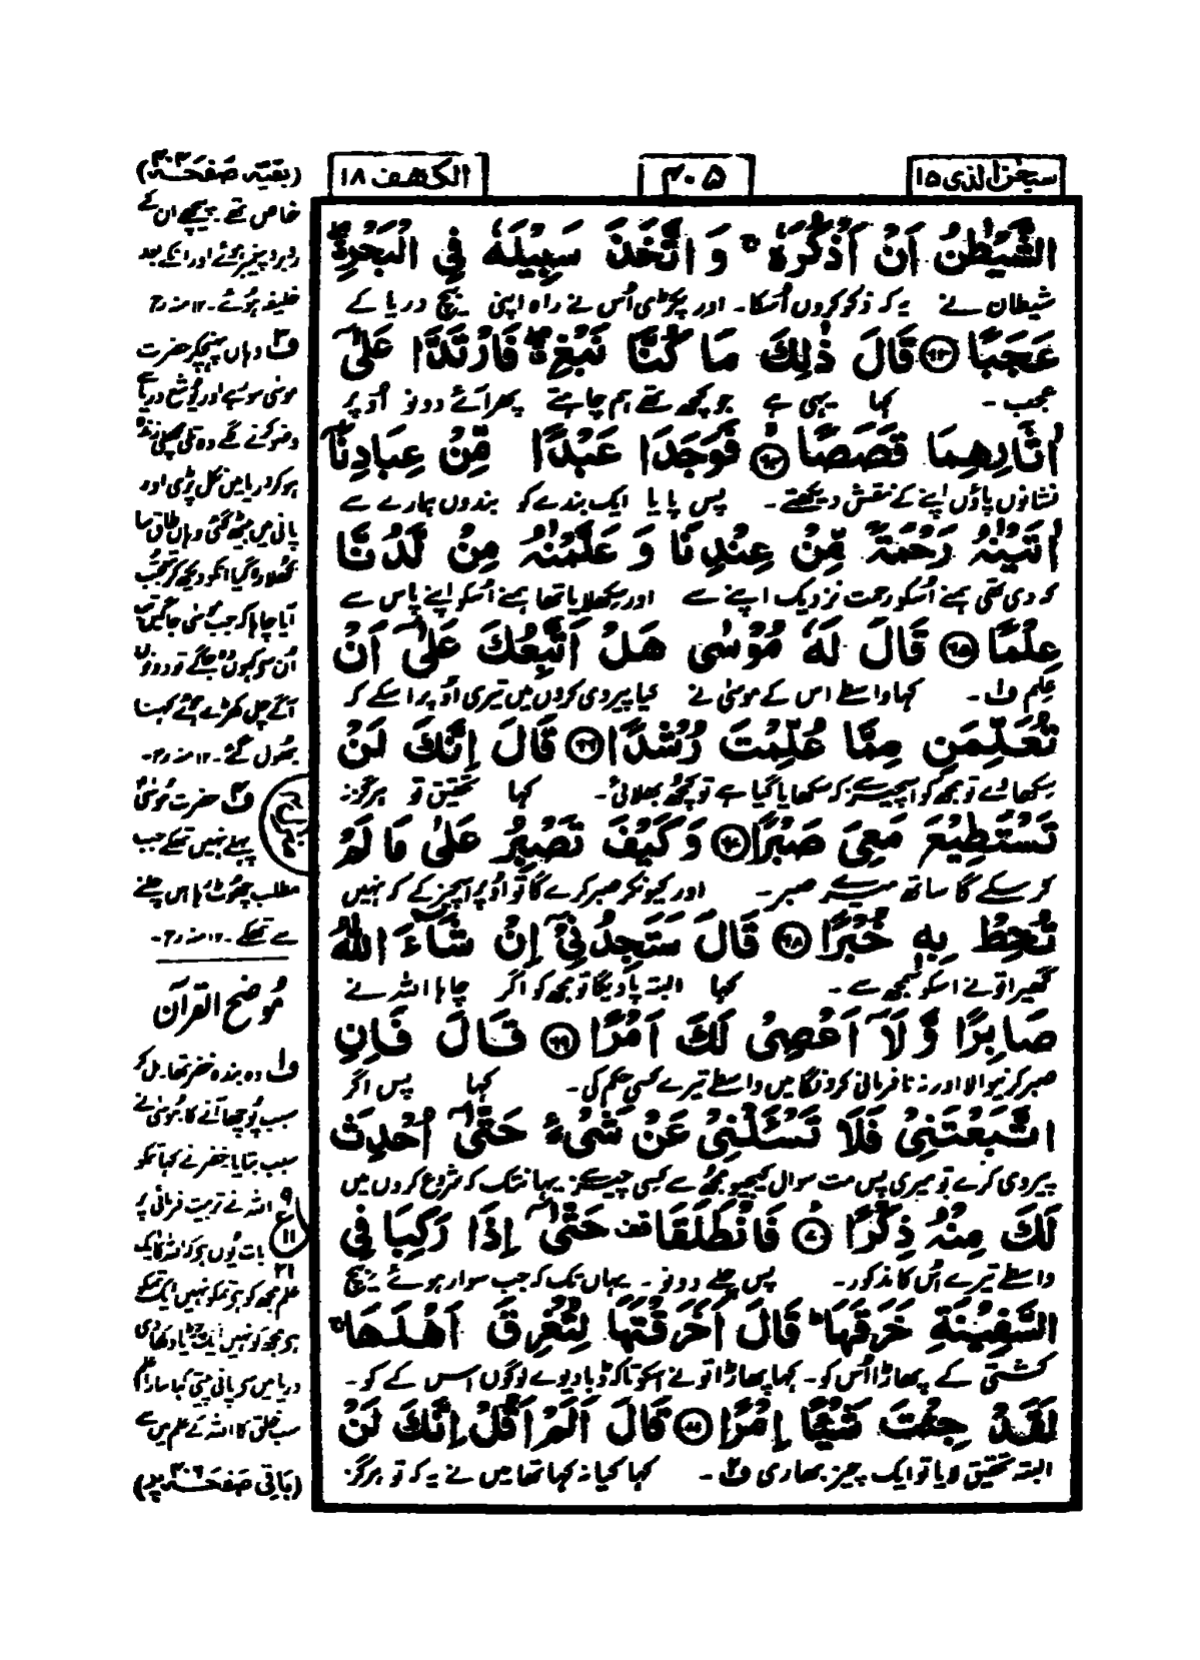 سبحٰن الذی ۱۵
۴۰۵
الکھف ۱۸
الشَّيْطٰنُ اَنْ اَذْكُرَهٗ ۚ وَ اتَّخَذَ سَبِيْلَهٗ فِي الْبَحْرِ ۖ
شیطان نے یہ کہ ذکر کروں اُسکا۔ اور پکڑی اُس نے راہ اپنی بیچ دریا کے
عَجَبًا ۶۳ قَالَ ذٰلِكَ مَا كُنَّا نَبْغِ ۖ فَارْتَدَّا عَلٰۤى
عجب۔ کہا یہی ہے جو کچھ تھے ہم چاہتے پھر آئے دونو اُوپر
اٰثَارِهِمَا قَصَصًا ۶۴ فَوَجَدَا عَبْدًا مِّنْ عِبَادِنَاۤ
نشانوں پاؤں اپنے کے نقش دیکھتے۔ پس پایا ایک بندے کو بندوں ہمارے سے
اٰتَيْنٰهُ رَحْمَةً مِّنْ عِنْدِنَا وَ عَلَّمْنٰهُ مِنْ لَّدُنَّا
کہ دی تھی ہمنے اُسکو رحمت نزدیک اپنے سے اور سکھلایا تھا ہمنے اُسکو اپنے پاس سے
عِلْمًا ۶۵ قَالَ لَهٗ مُوْسٰى هَلْ اَتَّبِعُكَ عَلٰۤى اَنْ
علم ف۱۔ کہا واسطے اس کے موسیٰ نے کیا پیروی کروں میں تیری اُوپر اسکے کہ
تُعَلِّمَنِ مِمَّا عُلِّمْتَ رُشْدًا ۶۶ قَالَ اِنَّكَ لَنْ
سکھائے تو مجھ کو اس چیز سے کہ سکھایا گیا ہے تو کچھ بھلائی۔ کہا تحقیق تو ہرگز نہ
تَسْتَطِيْعَ مَعِيَ صَبْرًا ۶۷ وَ كَيْفَ تَصْبِرُ عَلٰى مَا لَمْ
کر سکے گا ساتھ میرے صبر۔ اور کیونکر صبر کرے گا تو اُوپر اس چیز کے کہ نہیں
تُحِطْ بِهٖ خُبْرًا ۶۸ قَالَ سَتَجِدُنِيْۤ اِنْ شَآءَ اللّٰهُ
گھیرا تونے اسکو سمجھ سے۔ کہا البتہ پاویگا تو مجھ کو اگر چاہا اللہ نے
صَابِرًا وَّ لَاۤ اَعْصِيْ لَكَ اَمْرًا ۶۹ قَالَ فَاِنِ
صبر کرنیوالا اور نہ نافرمانی کرونگا میں واسطے تیرے کسی حکم کی۔ کہا پس اگر
اتَّبَعْتَنِيْ فَلَا تَسْـَٔلْنِيْ عَنْ شَيْءٍ حَتّٰۤى اُحْدِثَ
پیروی کرے تو میری پس مت سوال کیجیو مجھ سے کسی چیز سے یہانتک کہ شروع کروں میں
لَكَ مِنْهُ ذِكْرًا ۷۰ فَانْطَلَقَا قف حَتّٰۤى اِذَا رَكِبَا فِي
واسطے تیرے اُس کا مذکور۔ پس چلے دونو۔ یہاں تک کہ جب سوار ہوئے بیچ
السَّفِيْنَةِ خَرَقَهَا ؕ قَالَ اَخَرَقْتَهَا لِتُغْرِقَ اَهْلَهَا ۚ
کشتی کے پھاڑا اُس کو۔ کہا پھاڑا تونے اسکو تاکہ ڈباویوے لوگوں اس کے کو۔
لَقَدْ جِئْتَ شَيْـًٔا اِمْرًا ۷۱ قَالَ اَلَمْ اَقُلْ اِنَّكَ لَنْ
البتہ تحقیق لایا تو ایک چیز بھاری ف۲۔ کہا کیا نہ کہا تھا میں نے یہ کہ تو ہرگز
(بقیہ صفحہ ۴۰۴)
خاص تھے۔ پیچھے ان کے
روبرو پیغمبر ہوئے اور انکے بعد
خلیفہ ہوئے۔ ۱۲ منہ رح
ف۳ وہاں پہنچکر حضرت
موسیٰ سو رہے اور یوشع دریا سے
وضو کرنے لگے وہ تلی مچھلی زندہ
ہو کر دریا میں نکل پڑی اور
پانی میں بیٹھ گئی وہاں طاق سا
کھلا رہ گیا انکو دیکھ کر تعجب
آیا چاہا کہ جب موسیٰ جاگیں
اُن سے کہوں وہ جاگے تو دونوں
آگے چل کھڑے ہوئے کہنا
بھول گئے۔ ۱۲ منہ رح۔
ف۴ حضرت موسیٰ
پہلے نہیں تھکے جب
مطلب چھوٹ رہا اس چلنے
سے تھکے۔ ۱۲ منہ رح۔
مُوضح القرآن
ف۱ وہ بندہ خضر تھا۔ بل کر
سبب پُوچھا آنے کا موسیٰ نے
سبب بتایا خضر نے کہا تم کو
اللہ نے تربیت فرمائی پر
بات یُوں ہے کہ اللہ کا ایک
علم مجھ کو ہے تم کو نہیں ایک تم کو
ہے مجھ کو نہیں ایک چڑیا دکھا دی
دریا میں سے پانی پیتی کہا سارا علم
سب خلق کا اللہ کے علم میں سے
(باقی صفحہ ۴۰۶ پر)
۹
ع
۱۱
۲۱